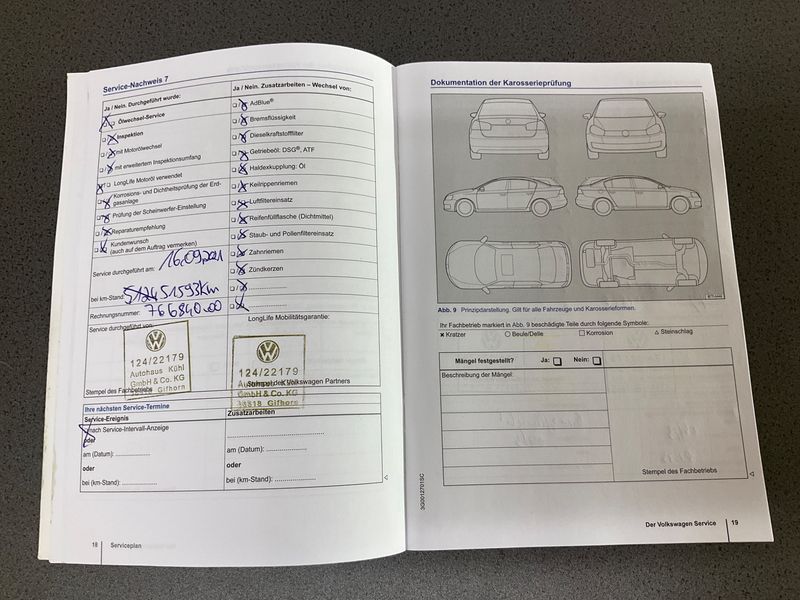 Service-Nachweis 7
Ja / Nein. Durchgeführt wurde:
Ölwechsel-Service
Inspektion
mit Motorölwechsel
mit erweitertem Inspektionsumfang
LongLife Motoröl verwendet
Korrosions- und Dichtheitsprüfung der Erd-
gasanlage
Prüfung der Scheinwerfer-Einstellung
Reparaturempfehlung
Kundenwunsch
(auch auf dem Auftrag vermerken)
Service durchgeführt am: 16.09.2021
bei km-Stand: 51593km
Rechnungsnummer: 766840.00
Service durchgeführt von:
124/22179
Autohaus Kühl
GmbH & Co. KG
Gifhorn
Stempel des Fachbetriebs
Ja / Nein. Zusatzarbeiten – Wechsel von:
AdBlue®
Bremsflüssigkeit
Dieselkraftstofffilter
Getriebeöl: DSG®, ATF
Haldexkupplung: Öl
Keilrippenriemen
Luftfiltereinsatz
Reifenfüllflasche (Dichtmittel)
Staub- und Pollenfiltereinsatz
Zahnriemen
Zündkerzen
LongLife Mobilitätsgarantie:
124/22179
Autohaus Kühl
GmbH & Co. KG
38518 Gifhorn
Stempel des Volkswagen Partners
Ihre nächsten Service-Termine
Service-Ereignis
nach Service-Intervall-Anzeige
oder
am (Datum):
oder
bei (km-Stand):
Zusatzarbeiten
am (Datum):
oder
bei (km-Stand):
18 Serviceplan
Dokumentation der Karosserieprüfung
Abb. 9 Prinzipdarstellung. Gilt für alle Fahrzeuge und Karosserieformen.
Ihr Fachbetrieb markiert in Abb. 9 beschädigte Teile durch folgende Symbole:
× Kratzer ○ Beule/Delle □ Korrosion △ Steinschlag
Mängel festgestellt? Ja: Nein:
Beschreibung der Mängel:
Stempel des Fachbetriebs
3G0012701SC
Der Volkswagen Service 19